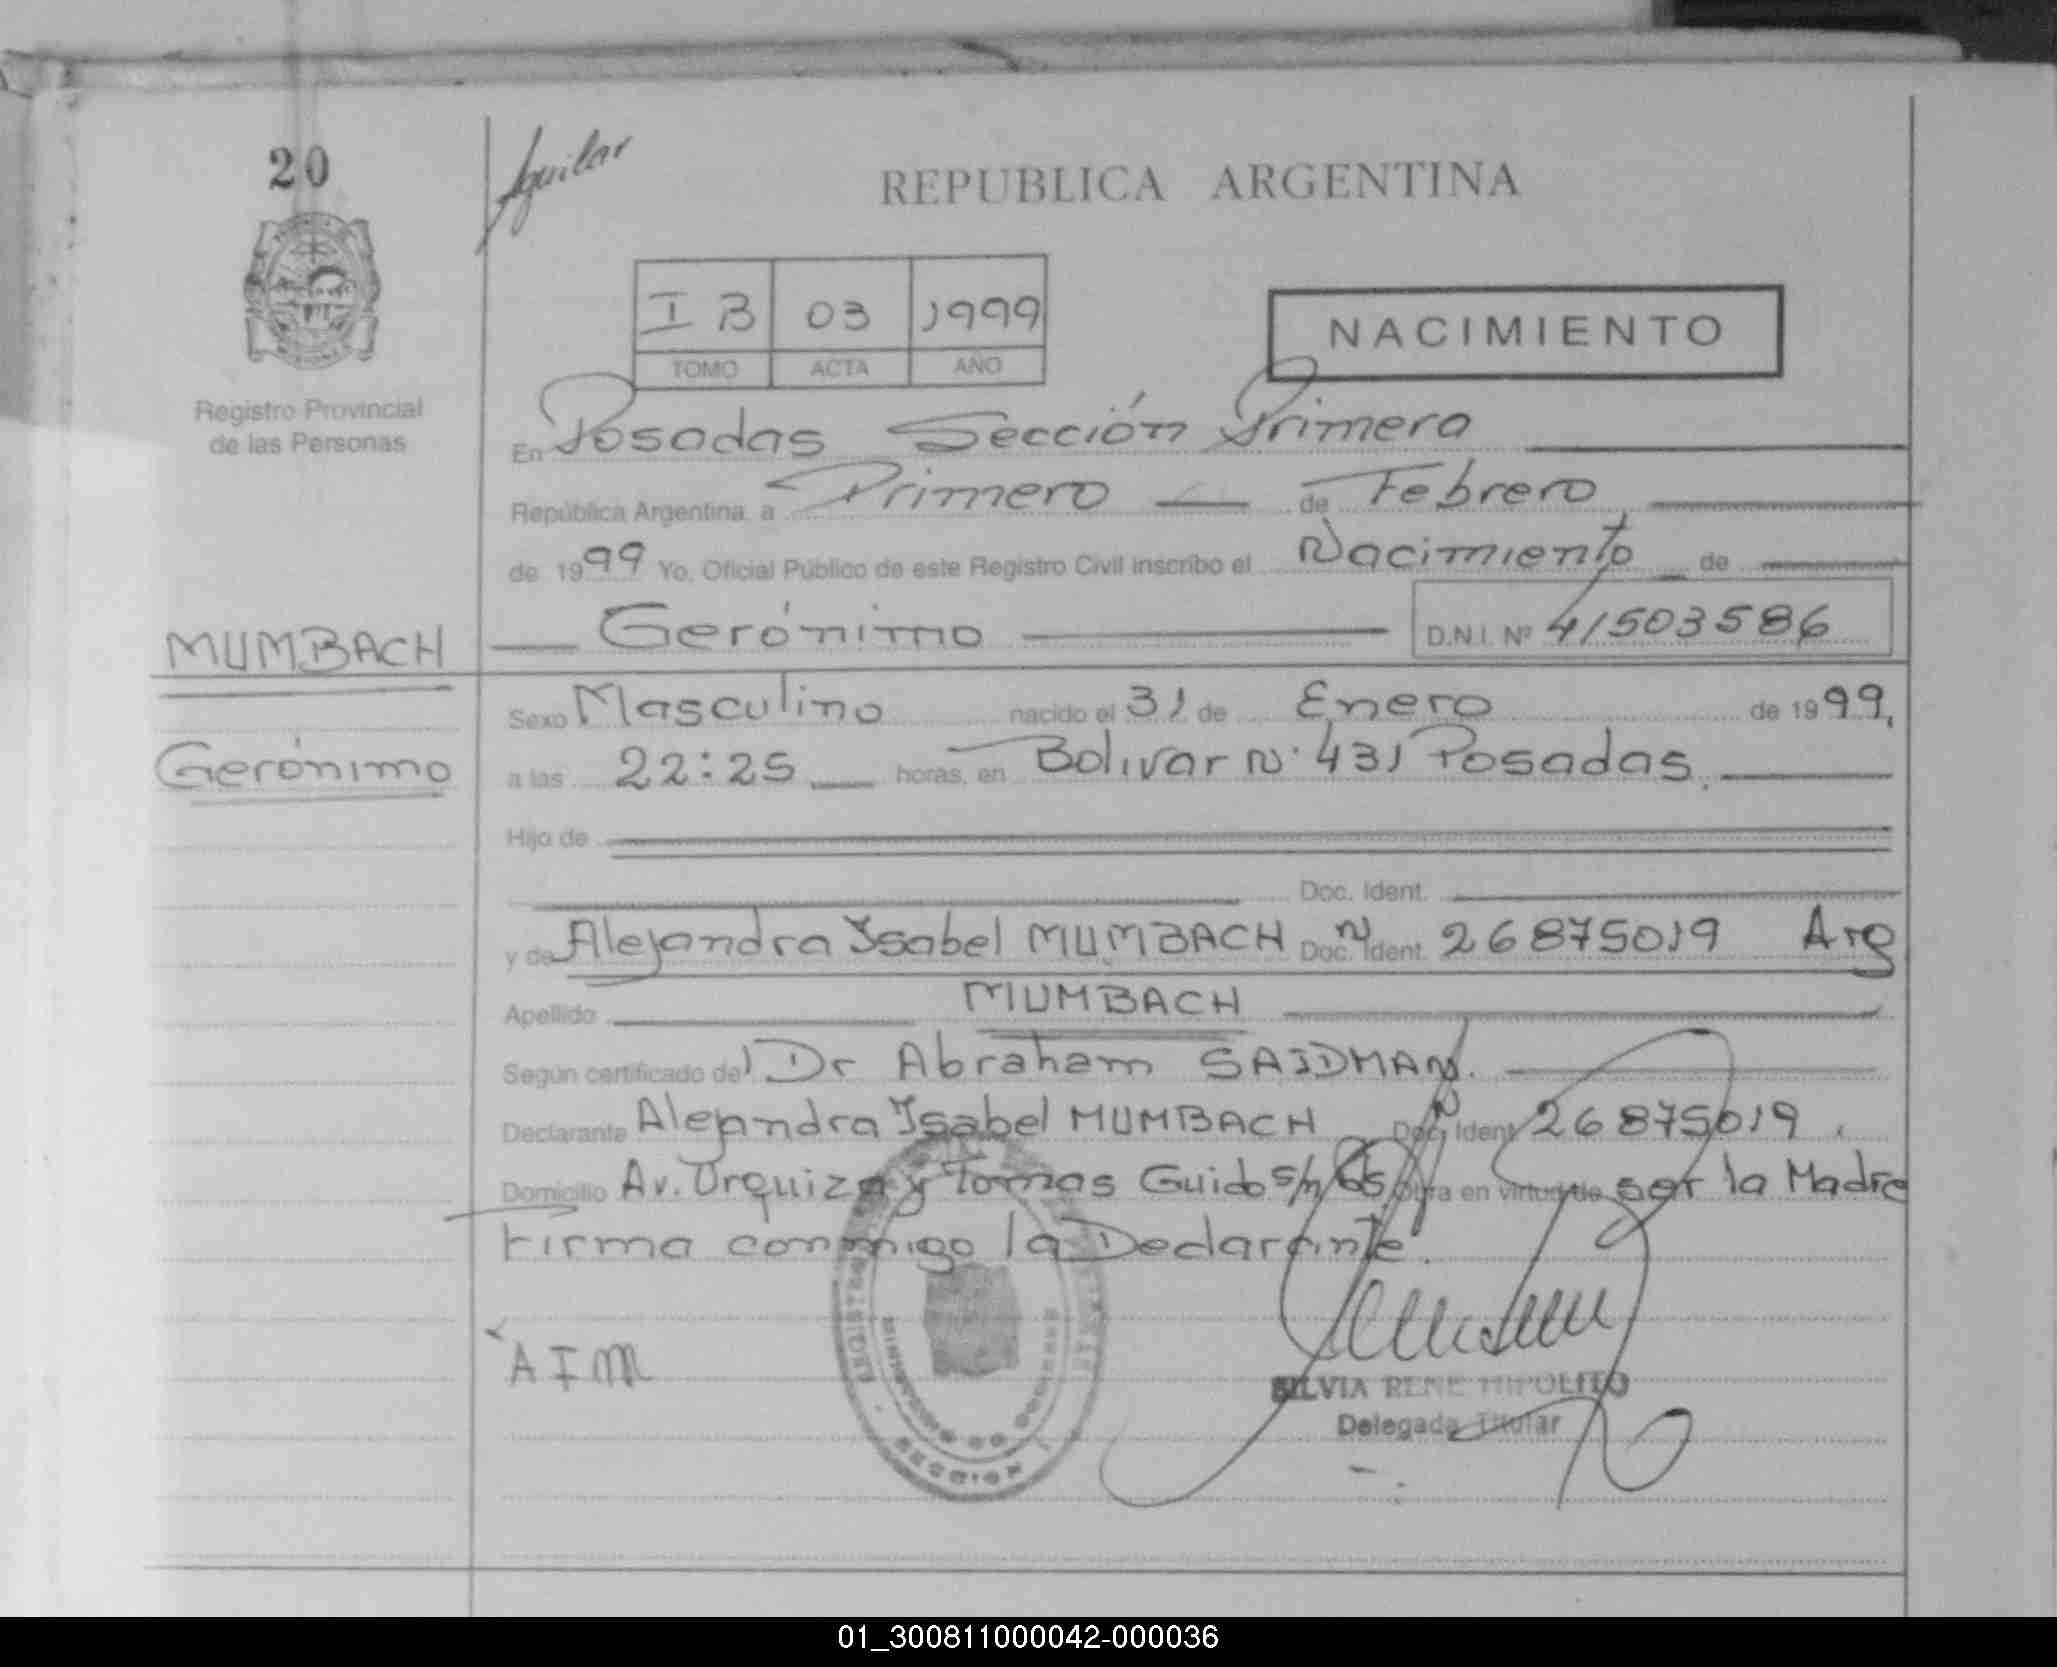 20
Aguilar
REPUBLICA ARGENTINA
I B 03 1999
TOMO ACTA AÑO
NACIMIENTO
Registro Provincial
de las Personas
En Posadas Sección Primera
República Argentina, a Primero de Febrero
de 1999 Yo, Oficial Público de este Registro Civil inscribo el Nacimiento de
MUMBACH
Gerónimo D.N.I. Nº 41503586
Sexo Masculino nacido el 31 de Enero de 1999,
Gerónimo
a las 22:25 horas, en Bolivar N· 431 Posadas.
Hijo de
Doc. Ident.
y de Alejandra Ysabel MUMBACH Doc. Ident. N 26875019 Arg
Apellido MUMBACH
Según certificado del Dr Abraham SAIDMAN.
Declarante Alejandra Ysabel MUMBACH Doc. Ident. N 26875019.
Domicilio Av. Urquiza y Tomas Guido s/n Obra en virtud de ser la Madre
Firma conmigo la Declarante.
A I M
REGISTRO
MINISTERIO DE GOBIERNO
SECCION
SILVIA RENE HIPOLITO
Delegada Titular
01_300811000042-000036